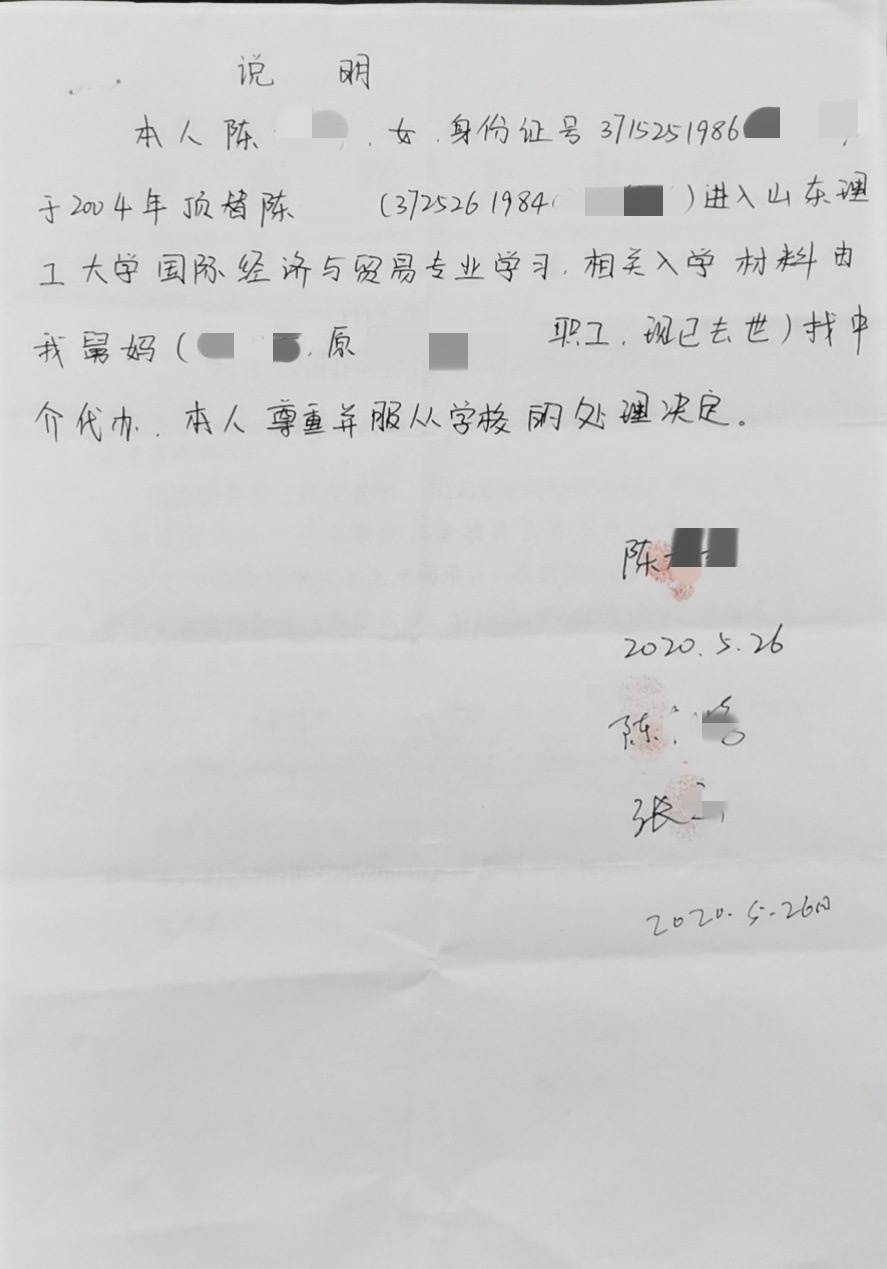 说 明
本人陈 , 女, 身份证号3715251986 ,
于2004年顶替陈 (3725261984 )进入山东理
工大学国际经济与贸易专业学习,相关入学材料由
我舅妈( ,原 职工,现已去世)找中
介代办. 本人尊重并服从学校的处理决定。
陈
2020.5.26
陈
张
2020.5.26日